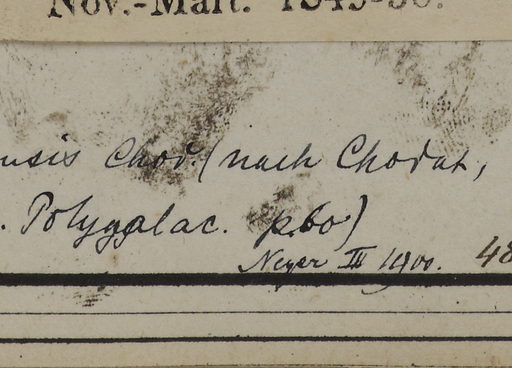 Nov.-Mart. 1849-50.
ensis Chod. (nach Chodat,
. Polygalac. p. 60)
III 1900. 48